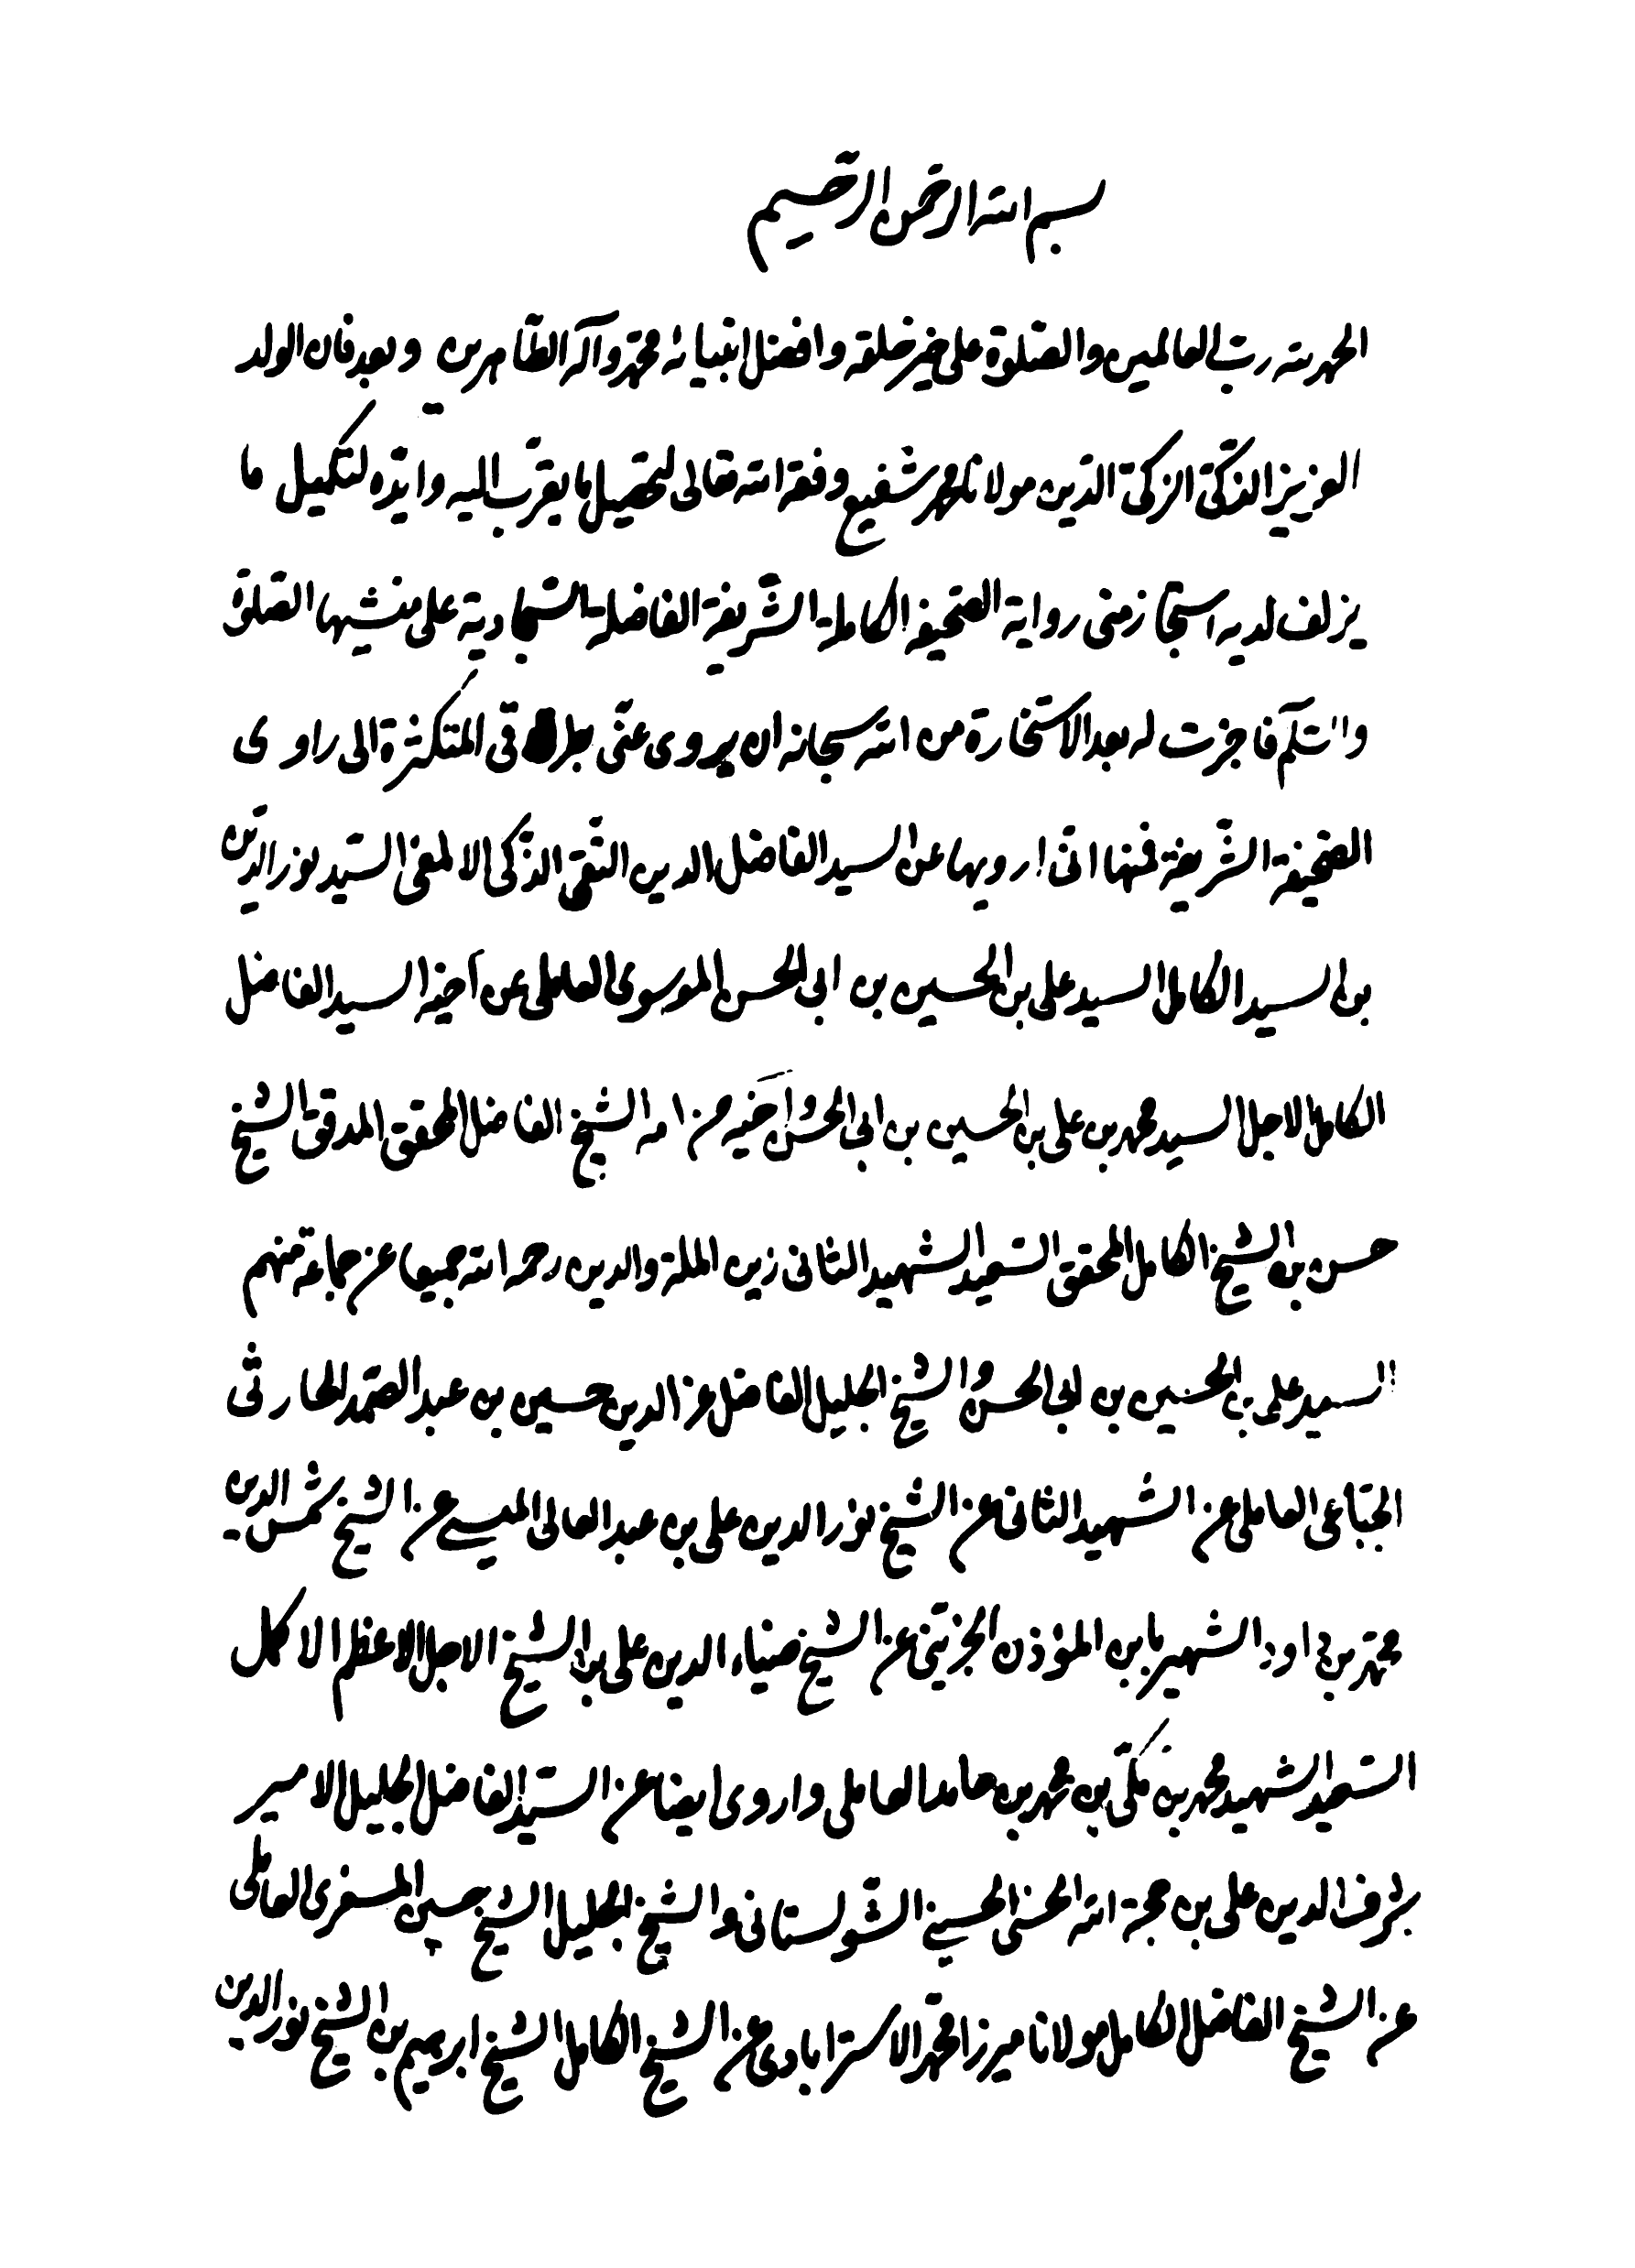 بسم الله الرحمن الرحيم
الحمد لله رب العالمين والصلوة على خير خلقه وافضل انبيائه محمد وآله الطاهرين وبعد فان الولد
العزيز الذكى الزكى الدين مولانا محمد شفيع وفقه الله تعالى لتحصيل ما يقرب اليه وايده لتكميل ما
يزلف لديه استجاز منى رواية الصحيفة الكاملة الشريفة الفاضلة السجادية على منشيها الصلوة
والسلم فاجزت له بعد الاستخارة من الله سبحانه ان يروى عنى بطرقى المتكثرة الى راوى
الصحيفة الشريفة فمنها انى ارويها عن السيد الفاضل الدين التقى الذكى الالمعى السيد نور الدين
بن السيد الكامل السيد على بن الحسين بن ابى الحسن الموسوى العاملى عن اخيه السيد الفاضل
الكامل الاجل السيد محمد بن على بن الحسين بن ابى الحسن واخيه من امه الشيخ الفاضل المحقق المدقق الشيخ
حسن بن الشيخ الكامل المحقق السعيد الشهيد الثانى زين الملة والدين رحمه الله جميعا عن جماعة منهم
السيد على بن الحسين بن ابى الحسن والشيخ الجليل الفاضل عز الدين حسين بن عبد الصمد الحارثى
الجباعى العاملى عن الشهيد الثانى عن الشيخ نور الدين على بن عبد العالى الميسى عن الشيخ شمس الدين
محمد بن داود الشهير بابن المؤذن الجزينى عن الشيخ ضياء الدين على بن الشيخ الاجل الاعظم الاكمل
السعيد الشهيد محمد بن مكى بن محمد بن حامد العاملى واروى ايضا عن السيد الفاضل الجليل الامير
شرف الدين على بن حجة الله الحسنى الحسينى الشولستانى والشيخ الجليل الشيخ حسين المسغرى العاملى
عن الشيخ الفاضل الكامل مولانا ميرزا محمد الاسترابادى عن الشيخ الكامل الشيخ ابرهيم بن الشيخ نور الدين